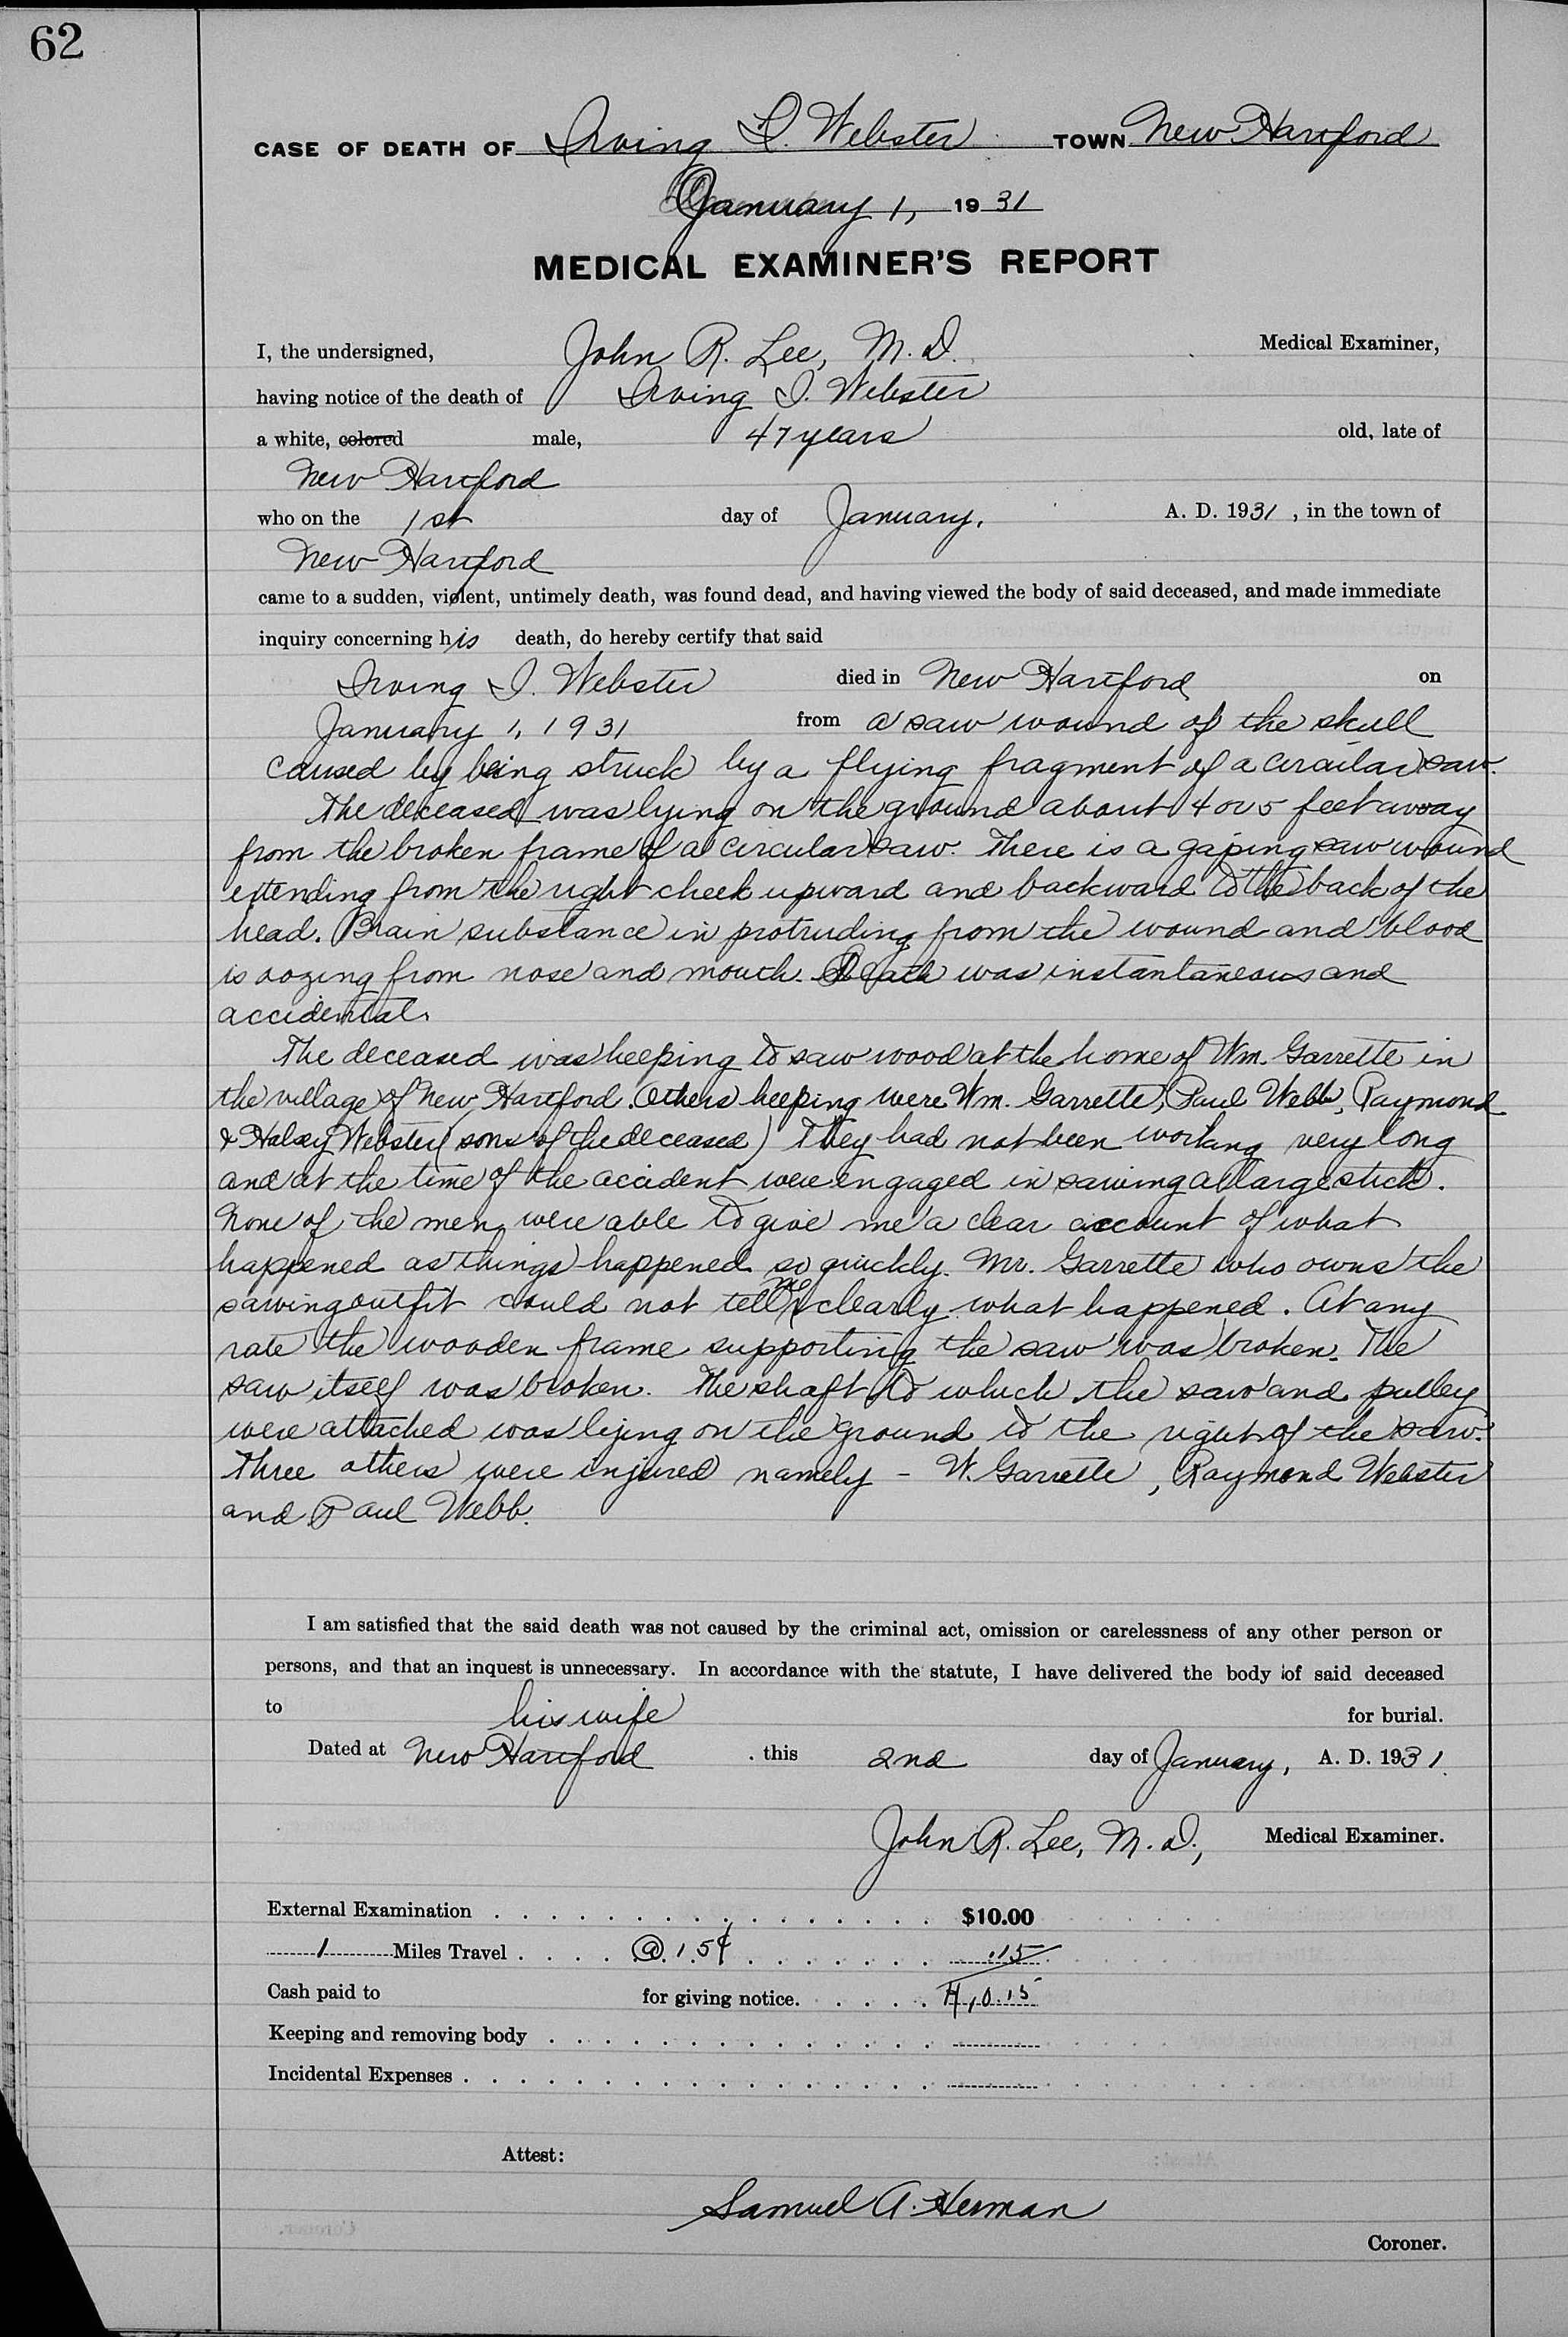 62
CASE OF DEATH OF Irving I. Webster TOWN New Hartford
January 1, 1931
MEDICAL EXAMINER'S REPORT
I, the undersigned, John R. Lee, M. D. Medical Examiner,
having notice of the death of Irving I. Webster
a white, colored male, 47 years old, late of
New Hartford
who on the 1st day of January, A. D. 1931, in the town of
New Hartford
came to a sudden, violent, untimely death, was found dead, and having viewed the body of said deceased, and made immediate
inquiry concerning his death, do hereby certify that said
Irving I. Webster died in New Hartford on
January 1, 1931 from a saw wound of the skull
caused by being struck by a flying fragment of a circular saw.
The deceased was lying on the ground about 4 or 5 feet away
from the broken frame of a circular saw. There is a gaping saw wound
extending from the right cheek upward and backward to the back of the
head. Brain substance in protruding from the wound and blood
is oozing from nose and mouth. Death was instantaneous and
accidental.
The deceased was helping to saw wood at the home of Wm. Garrette in
the village of New Hartford. Others helping were Wm. Garrette, Paul Webb, Raymond
& Halsey Webster (sons of the deceased) They had not been working very long
and at the time of the accident were engaged in sawing a large stick.
None of the men were able to give me a clear account of what
happened as things happened so quickly. Mr. Garrette who owns the
sawing outfit could not tell me clearly what happened. At any
rate the wooden frame supporting the saw was broken. The
saw itself was broken. The shaft to which the saw and pulley
were attached was lying on the ground to the right of the saw.
Three others were injured namely - W. Garrette, Raymond Webster
and Paul Webb.
I am satisfied that the said death was not caused by the criminal act, omission or carelessness of any other person or
persons, and that an inquest is unnecessary. In accordance with the statute, I have delivered the body of said deceased
to his wife for burial.
Dated at New Hartford. this 2nd day of January, A. D. 1931.
John R. Lee, M. D., Medical Examiner.
External Examination . . . . $10.00
1 Miles Travel . . . . @ 15¢ . . . . .15
Cash paid to for giving notice. . . . . 10.15
Keeping and removing body . . . .
Incidental Expenses . . . .
Attest:
Samuel A. Herman
Coroner.